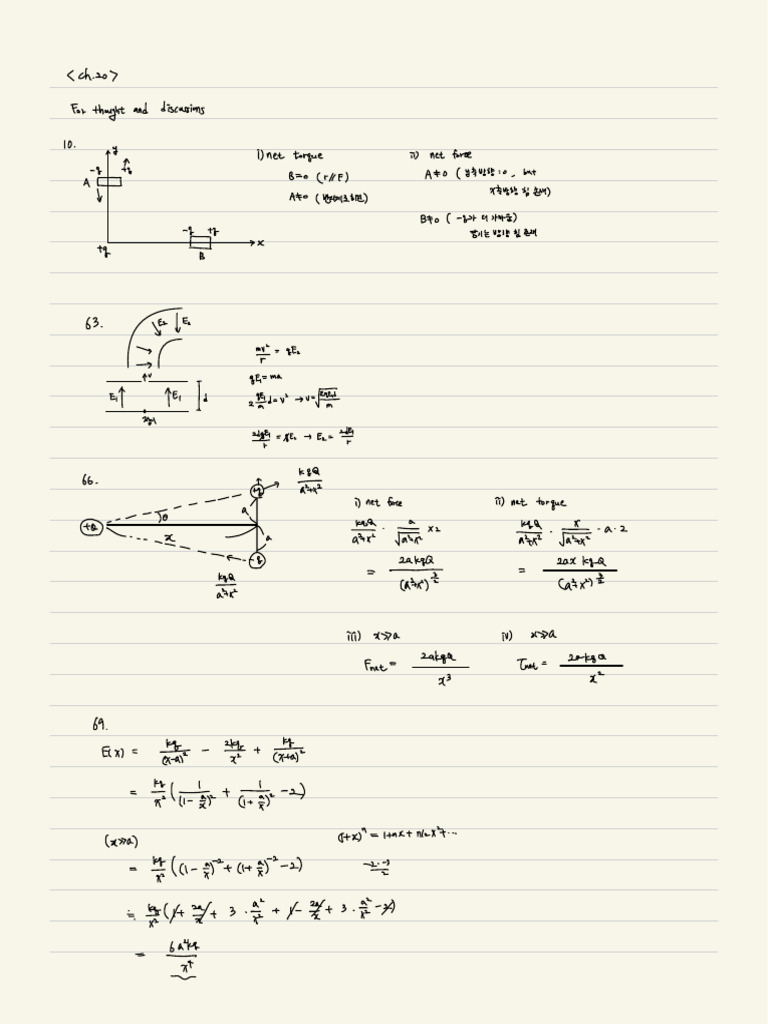 <ch.20>
For thought and discussions
10.
y
-q +q
A
+q
-q +q
B
x
i) net torque
B=0 (r//F)
A≠0 (반시계로회전)
ii) net force
A≠0 (y축방향:0, but
x축방향 힘 존재)
B≠0 (-q가 더 가까움)
당기는 방향 힘 존재
63.
E₂ E₂
v
E₁ E₁ d
mv²/r = qE₂
qE₁=ma
2 qE₁/m d=v² → v=√(2qE₁d/m)
2dqE₁/r = qE₂ → E₂ = 2dE₁/r
66.
+Q
θ
x
+q
a
a
-q
kqQ/(a²+x²)
kqQ/(a²+x²)
i) net force
kqQ/(a²+x²) · a/√(a²+x²) ×2
= 2akqQ/(a²+x²)^(3/2)
ii) net torque
kqQ/(a²+x²) · x/√(a²+x²) · a · 2
= 2ax kqQ/(a²+x²)^(3/2)
iii) x≫a
Fnet = 2akqQ/x³
iv) x≫a
τnet = 2akqQ/x²
69.
E(x) = kq/(x-a)² - 2kq/x² + kq/(x+a)²
= kq/x² (1/(1-a/x)² + 1/(1+a/x)² -2)
(x≫a)
(1+x)ⁿ = 1+nx+n/2x²+...
= kq/x² ((1-a/x)⁻² + (1+a/x)⁻² -2)
-2·-3/2
≒ kq/x² (1+2a/x + 3·a²/x² + 1-2a/x + 3·a²/x² -2)
= 6a²kq/x⁴